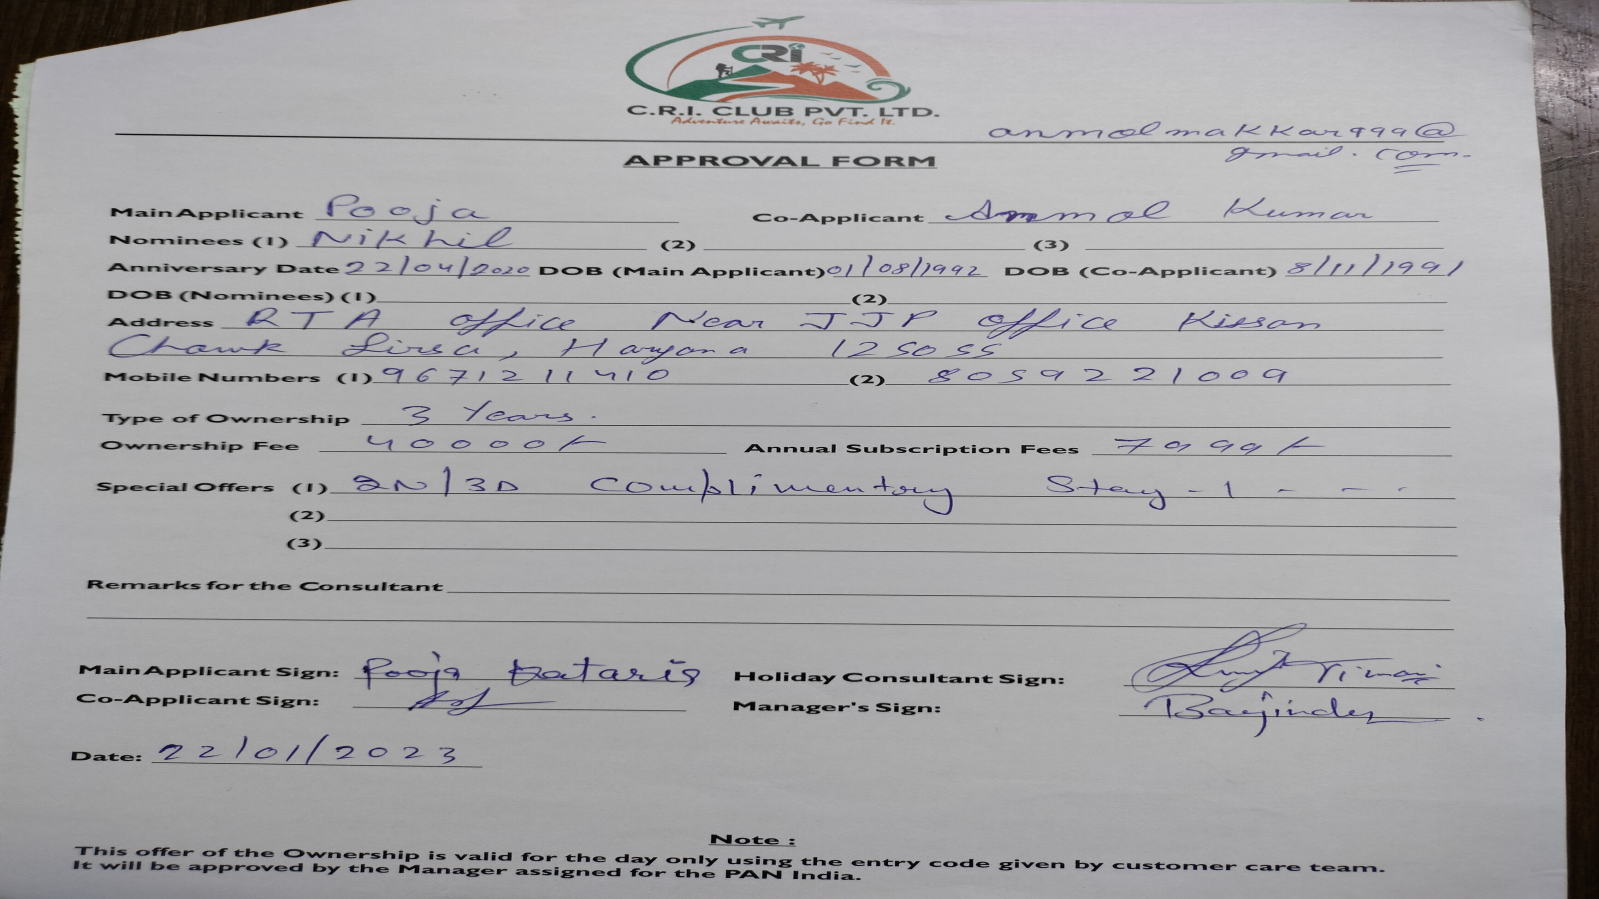 CRi
C.R.I. CLUB PVT. LTD.
Adventure Awaits, Go Find It.
anmolmakkar999@
gmail.com
APPROVAL FORM
Main Applicant Pooja Co-Applicant Anmol Kumar
Nominees (1) Nikhil (2) (3)
Anniversary Date 22/04/2020 DOB (Main Applicant) 01/08/1992 DOB (Co-Applicant) 8/11/1991
DOB (Nominees) (1) (2)
Address RTA office Near JJP office Kissan
Chowk Sirsa, Haryana 125055
Mobile Numbers (1) 9671211410 (2) 8059221009
Type of Ownership 3 Years.
Ownership Fee 40000/- Annual Subscription Fees 7999/-
Special Offers (1) 2N/3D Complimentory Stay - 1 - - -
(2)
(3)
Remarks for the Consultant
Main Applicant Sign: Pooja Kataria Holiday Consultant Sign:
Co-Applicant Sign: Manager's Sign:
Date: 22/01/2023
Note :
This offer of the Ownership is valid for the day only using the entry code given by customer care team.
It will be approved by the Manager assigned for the PAN India.